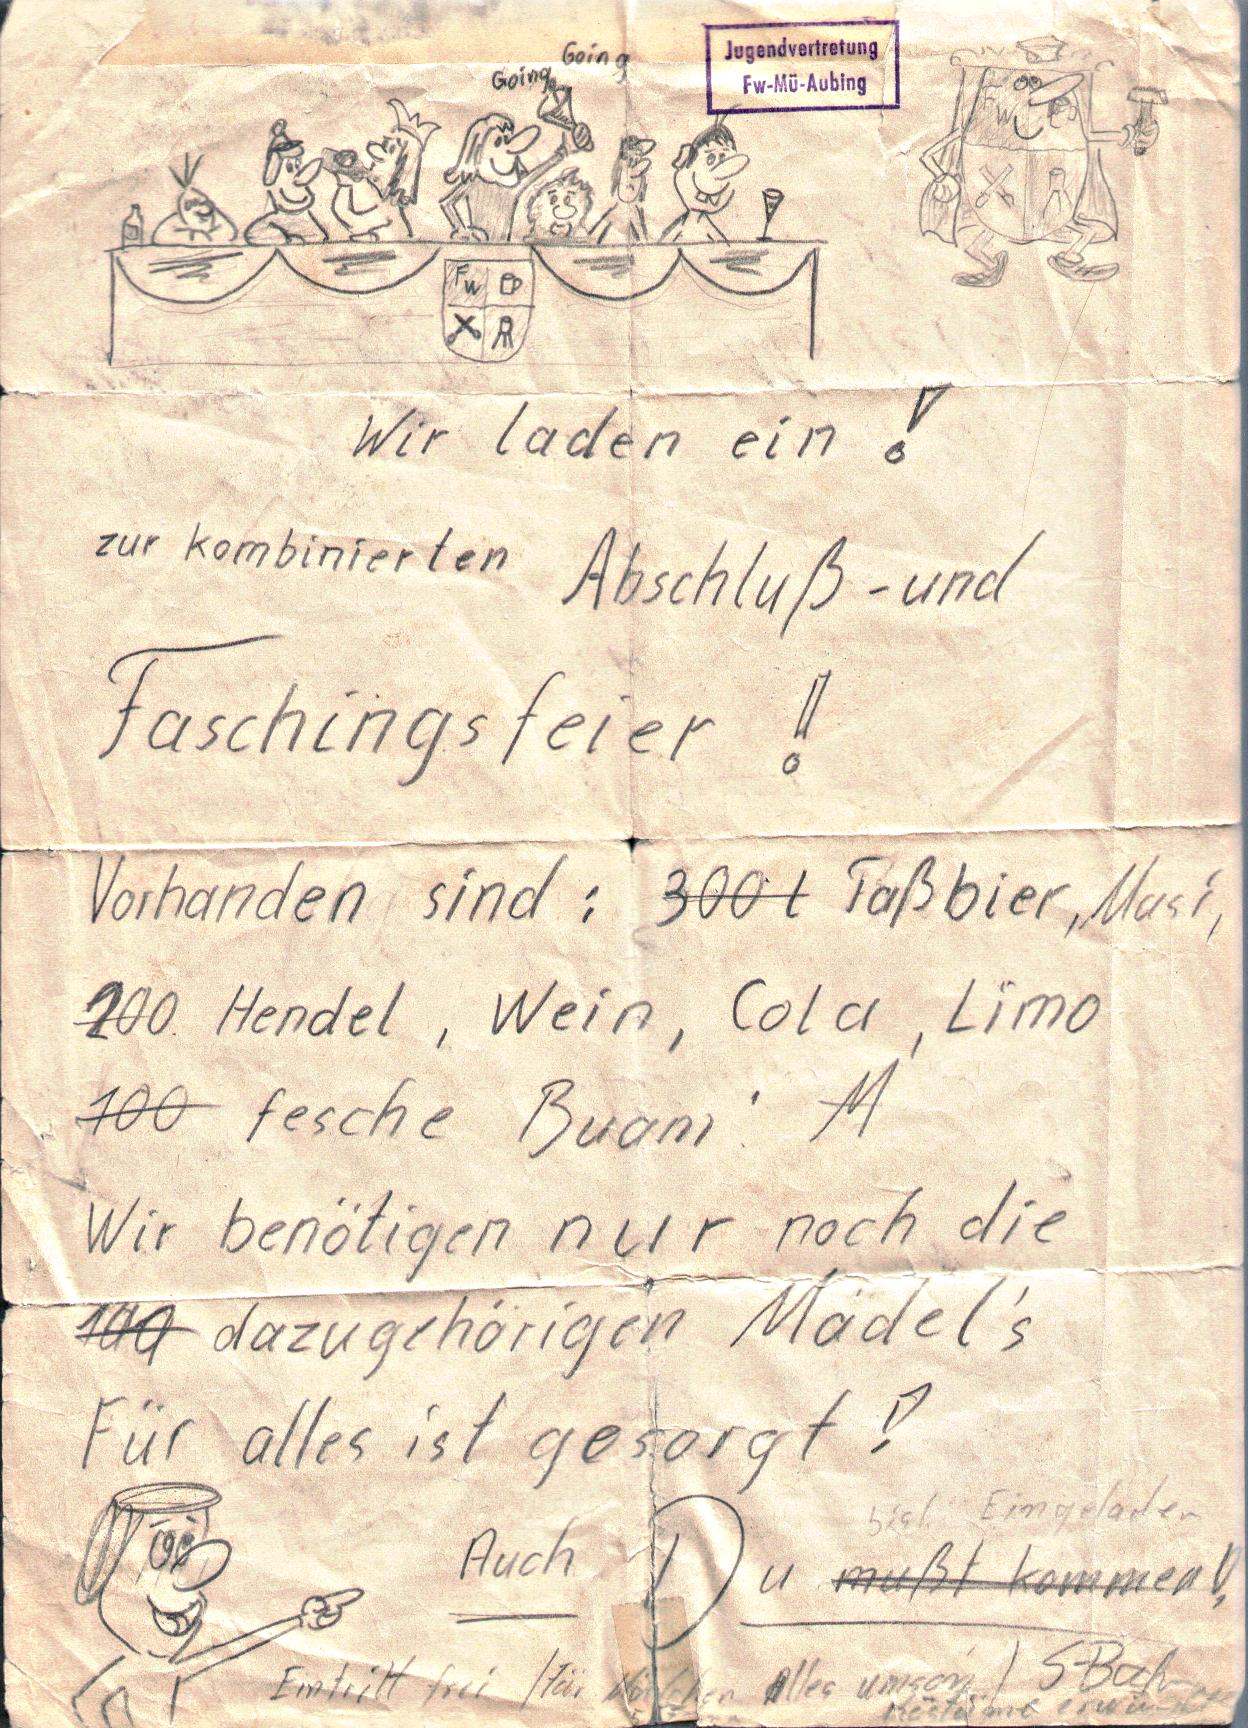 Going Going
Jugendvertretung
Fw-Mü-Aubing
Fw
Fw
Wir laden ein!
zur kombinierten Abschluß-und
Faschingsfeier!!
Vorhanden sind: 300 l Faßbier, Musi,
200 Hendel, Wein, Cola, Limo
100 fesche Buam
Wir benötigen nur noch die
100 dazugehörigen Mädel's
Für alles ist gesorgt!
Eingeladen
Auch Du mußt kommen!
Eintritt frei / Für Mädchen alles umson